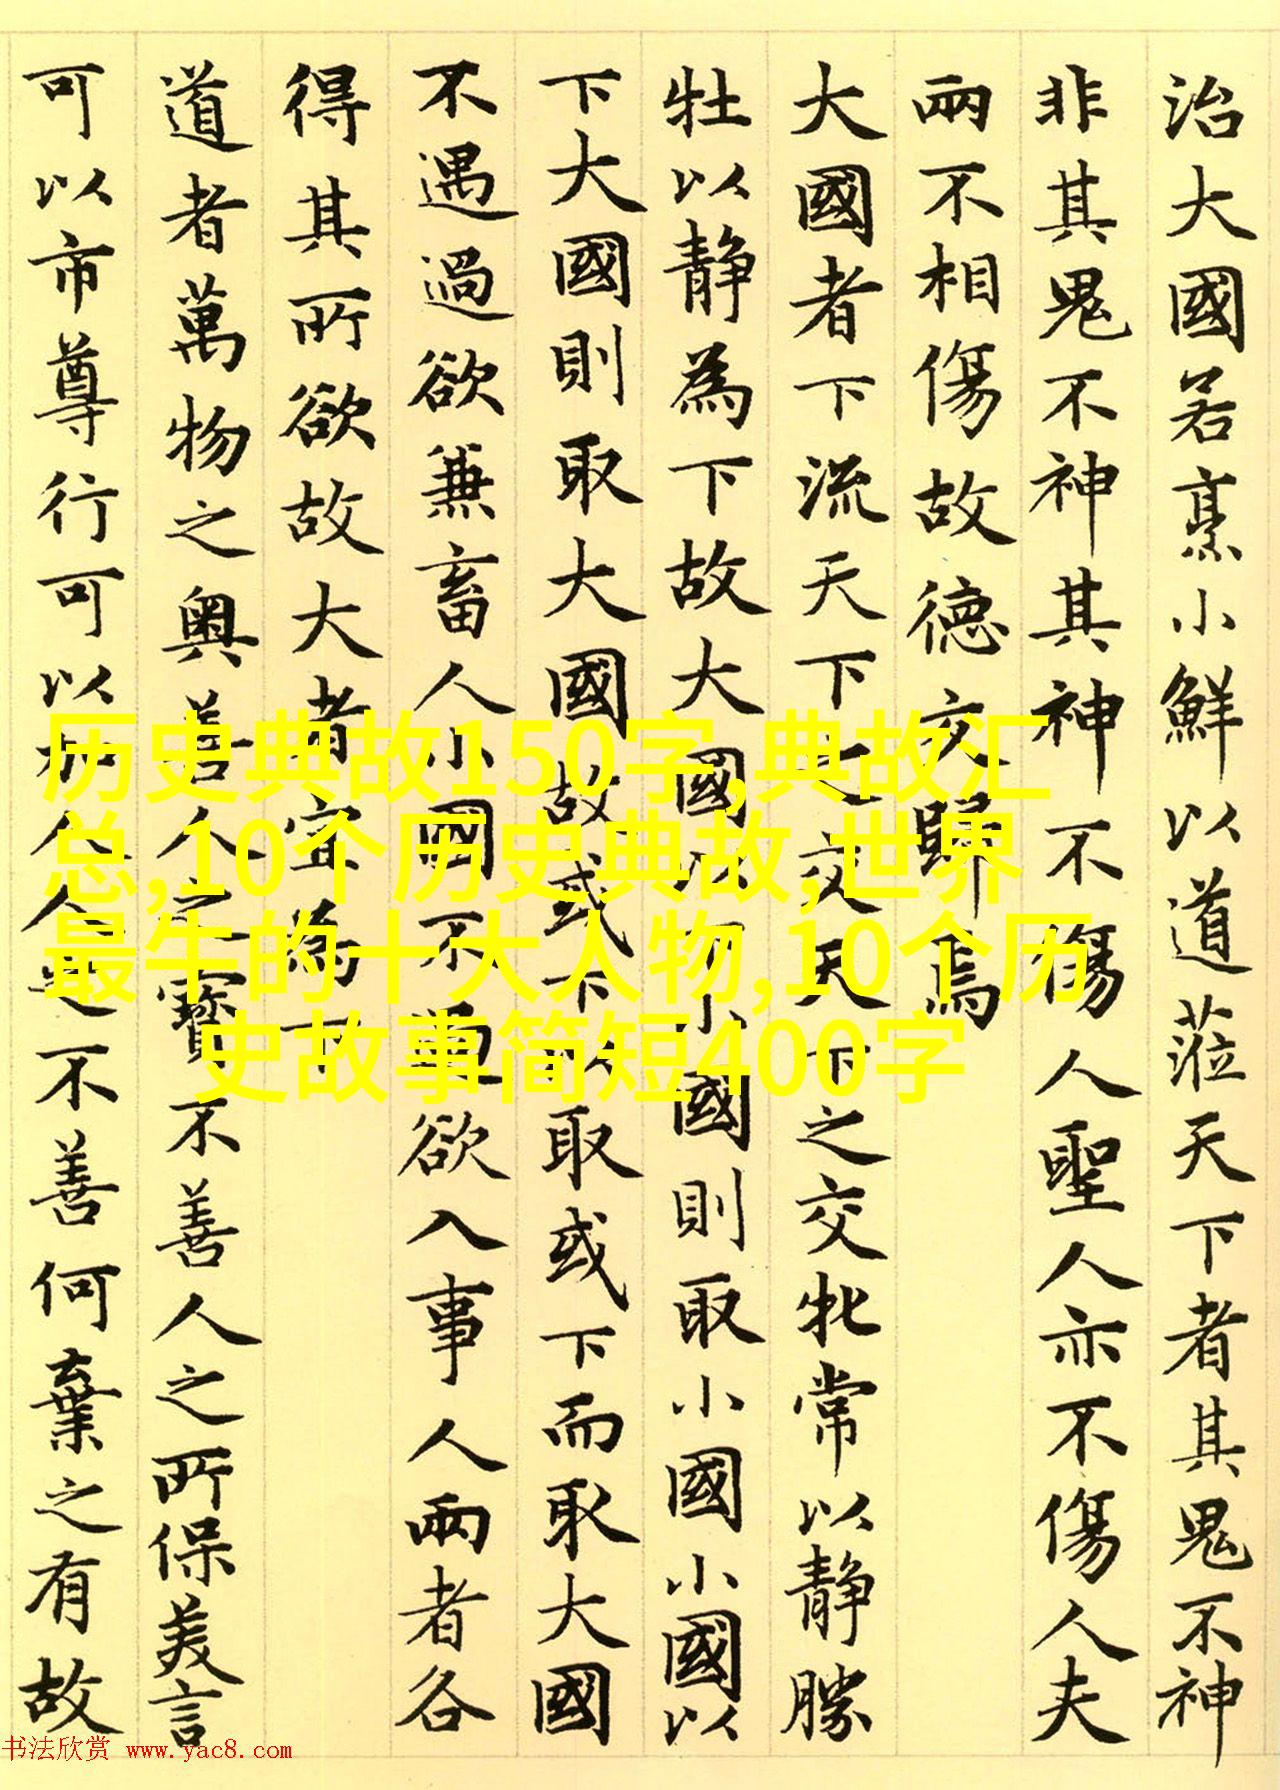 治大國若烹小鮮以道蒞天下者其鬼不神
非其鬼不神其神不傷人聖人亦不傷人夫
兩不相傷故德交歸焉
大國者下流天下之交天下之交牝常以靜勝
牡以靜為下故大國以下小國則取小國小國以
下大國則取大國故或下以取或下而取大國
不遇過欲兼畜人小國不過欲入事人兩者各
得其所欲故大者宜為下
道者萬物之奧善人之寶不善人之所保美言
可以市尊行可以加人人之不善何棄之有故
历史典故150字,典故汇
总,10个历史典故,世界
最牛的十大人物,10个历
史故事简短400字
书法欣赏 www.yac8.com